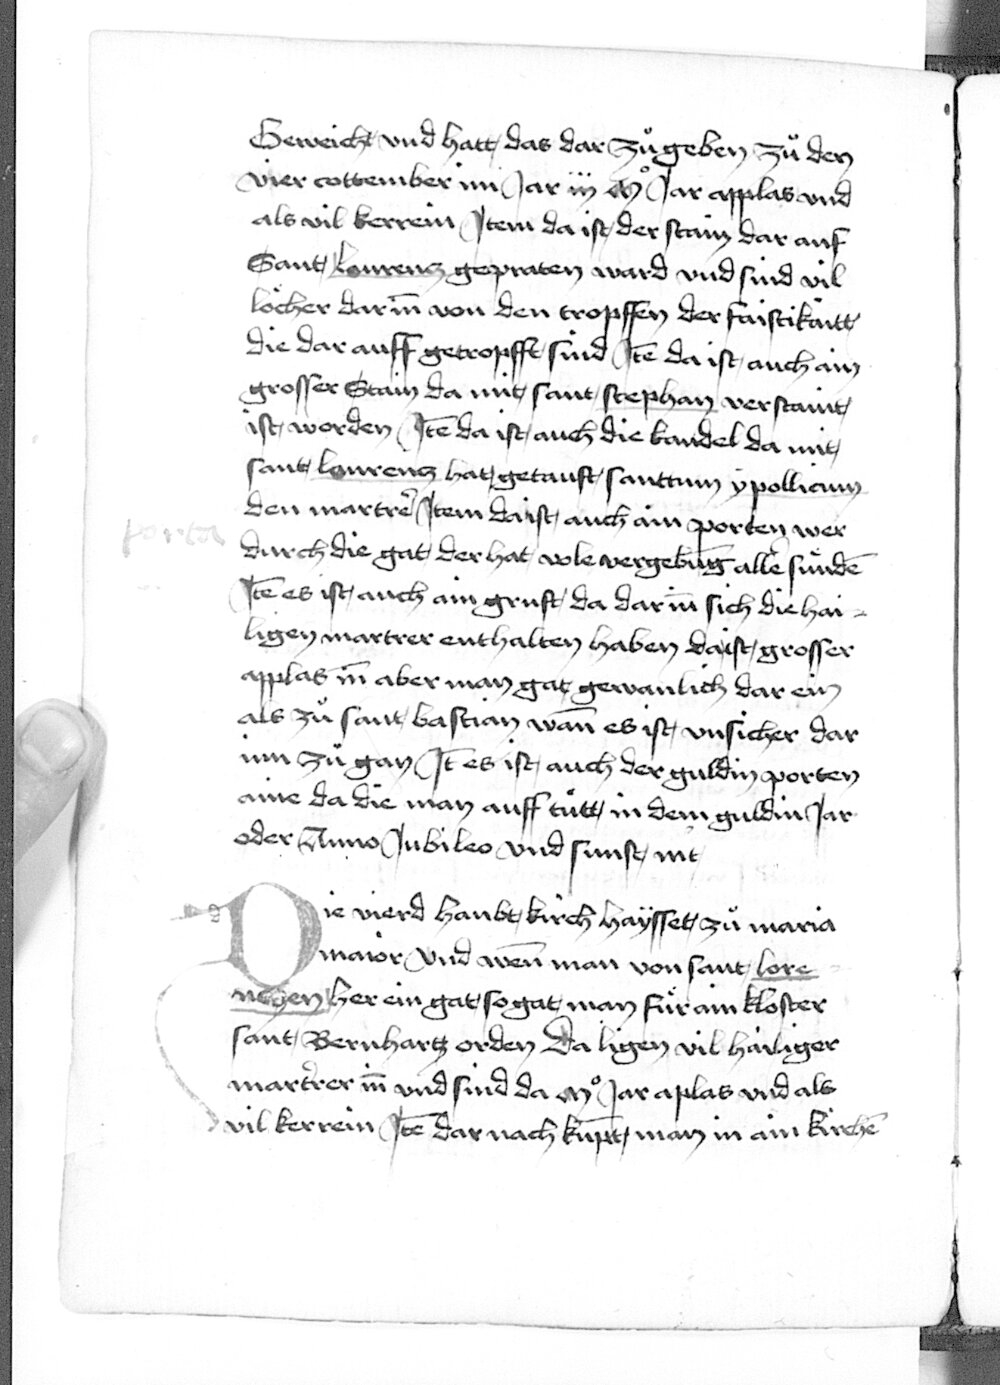 Geweicht vnd hatt das dar zů geben zů den
vier cottember im Jar iij Mº Jar applas vnd
als vil kerrein Item da ist der stain dar auf
Sant Lourencz gepraten ward vnd sind vil
löcher dar in̄ von den tropffen der faistikaitt
die dar auff getropfft sind Itē da ist auch ain
grosser Stain da mit sant stephan verstaint
ist worden Itē da ist auch die kandel da mit
sant lourencz hat getauft santtum ypollitum
den martrer Item da ist auch ain porten wer
porta
durch die gat der hat vole vergebūg aller sündē
Itē es ist auch ain gruft da dar in̄ sich die hai-
ligen martrer enthalten haben da ist grosser
applas in̄ aber man gat gewanlich dar ein
als zů sant bastian wan̄ es ist vnsicher dar
inn zů gan It̄ es ist auch der guldin porten
aine da die man auff tůtt in dem guldin Jar
oder Anno Jubileo vnd sunst nit
Die vierd haubt kirch haÿsset zů maria
maior Vnd wen̄ man von sant lore
nczen her ein gat so gat man für ain kloster
sant Bernhartz orden Da ligen vil hailiger
martrer in̄ vnd sind da Mº Jar aplas vnd als
vil kerrein Itē dar nach kūpt man in ain kirchē